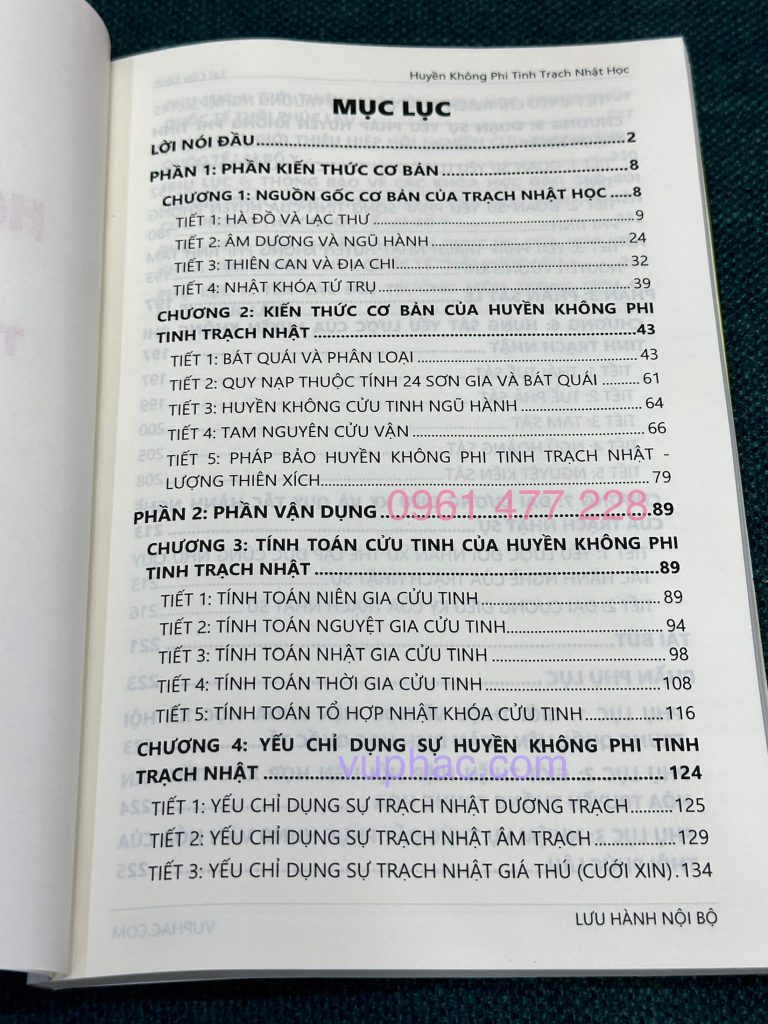 Huyền Không Phi Tinh Trạch Nhật Học
MỤC LỤC
LỜI NÓI ĐẦU.....2
PHẦN 1: PHẦN KIẾN THỨC CƠ BẢN.....8
CHƯƠNG 1: NGUỒN GỐC CƠ BẢN CỦA TRẠCH NHẬT HỌC.....8
TIẾT 1: HÀ ĐỒ VÀ LẠC THƯ.....9
TIẾT 2: ÂM DƯƠNG VÀ NGŨ HÀNH.....24
TIẾT 3: THIÊN CAN VÀ ĐỊA CHI.....32
TIẾT 4: NHẬT KHÓA TỨ TRỤ.....39
CHƯƠNG 2: KIẾN THỨC CƠ BẢN CỦA HUYỀN KHÔNG PHI
TINH TRẠCH NHẬT.....43
TIẾT 1: BÁT QUÁI VÀ PHÂN LOẠI.....43
TIẾT 2: QUY NẠP THUỘC TÍNH 24 SƠN GIA VÀ BÁT QUÁI.....61
TIẾT 3: HUYỀN KHÔNG CỬU TINH NGŨ HÀNH.....64
TIẾT 4: TAM NGUYÊN CỬU VẬN.....66
TIẾT 5: PHÁP BẢO HUYỀN KHÔNG PHI TINH TRẠCH NHẬT -
LƯỢNG THIÊN XÍCH.....79
PHẦN 2: PHẦN VẬN DỤNG.....89
0961.477.228
CHƯƠNG 3: TÍNH TOÁN CỬU TINH CỦA HUYỀN KHÔNG PHI
TINH TRẠCH NHẬT.....89
TIẾT 1: TÍNH TOÁN NIÊN GIA CỬU TINH.....89
TIẾT 2: TÍNH TOÁN NGUYỆT GIA CỬU TINH.....94
TIẾT 3: TÍNH TOÁN NHẬT GIA CỬU TINH.....98
TIẾT 4: TÍNH TOÁN THỜI GIA CỬU TINH.....108
TIẾT 5: TÍNH TOÁN TỔ HỢP NHẬT KHÓA CỬU TINH.....116
CHƯƠNG 4: YẾU CHỈ DỤNG SỰ HUYỀN KHÔNG PHI TINH
TRẠCH NHẬT.....124
vuphac.com
TIẾT 1: YẾU CHỈ DỤNG SỰ TRẠCH NHẬT DƯƠNG TRẠCH.....125
TIẾT 2: YẾU CHỈ DỤNG SỰ TRẠCH NHẬT ÂM TRẠCH.....129
TIẾT 3: YẾU CHỈ DỤNG SỰ TRẠCH NHẬT GIÁ THÚ (CƯỚI XIN).134
LƯU HÀNH NỘI BỘ